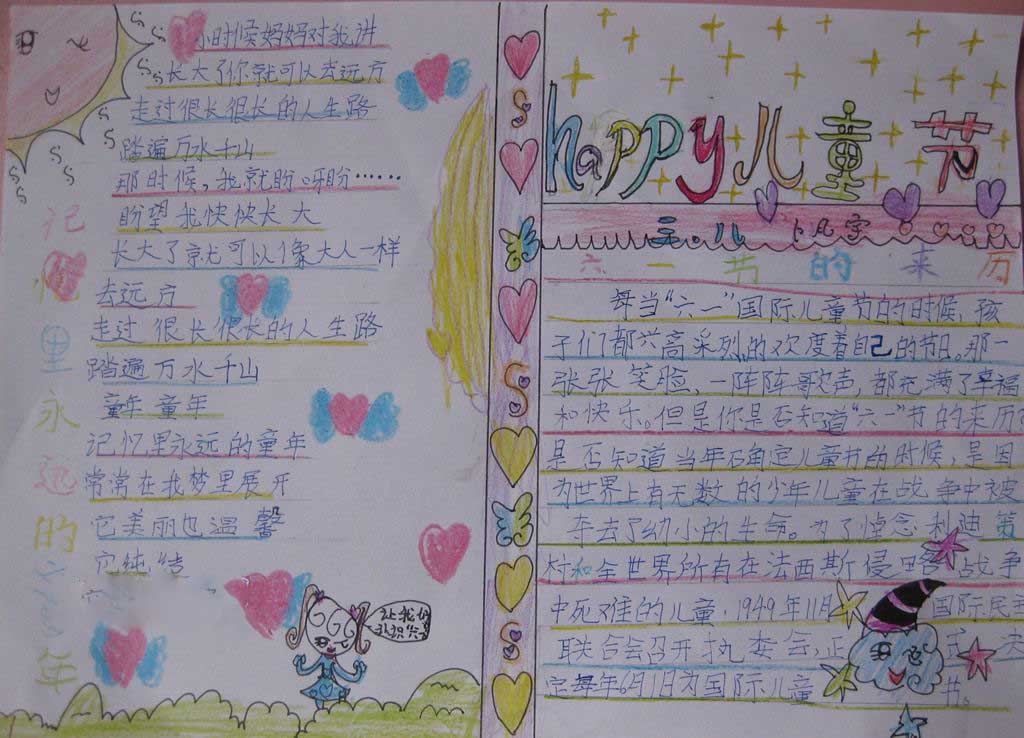 小时候妈妈对我讲
长大了你就可以去远方
走过很长很长的人生路
踏遍万水千山
那时候,我就盼呀盼……
盼望我快快长大
长大了就可以像大人一样
去远方
走过很长很长的人生路
踏遍万水千山
童年童年
记忆里永远的童年
常常在我梦里展开
它美丽也温馨
它纯洁
记忆里永远的童年
让我们
happy儿童节
三.八
六一节的来历
每当“六一”国际儿童节的时候,孩
子们都兴高采列的欢度着自己的节日。那一
张张笑脸,一阵阵歌声,都充满了幸福
和快乐。但是你是否知道“六一”节的来历?
是否知道当年确定儿童节的时候,是因
为世界上有无数的少年儿童在战争中被
夺去了幼小的生命。为了悼念利迪策
村和全世界所有在法西斯侵略战争
中死难的儿童,1949年11月国际民主
联合会召开执委会,正式决
定每年6月1日为国际儿童节。